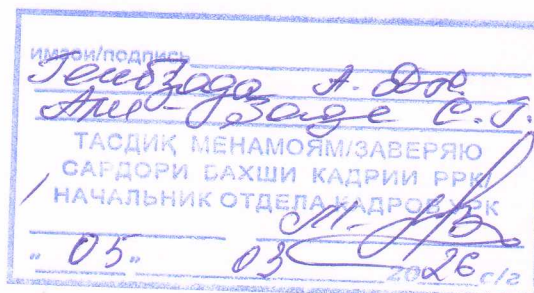 имзои/подпись
А. Дж.
Али-Заде С. Г.
ТАСДИҚ МЕНАМОЯМ/ЗАВЕРЯЮ
САРДОРИ БАХШИ КАДРИИ РРК/
НАЧАЛЬНИК ОТДЕЛА КАДРОВ УРК
"05" 03 2026 с/г